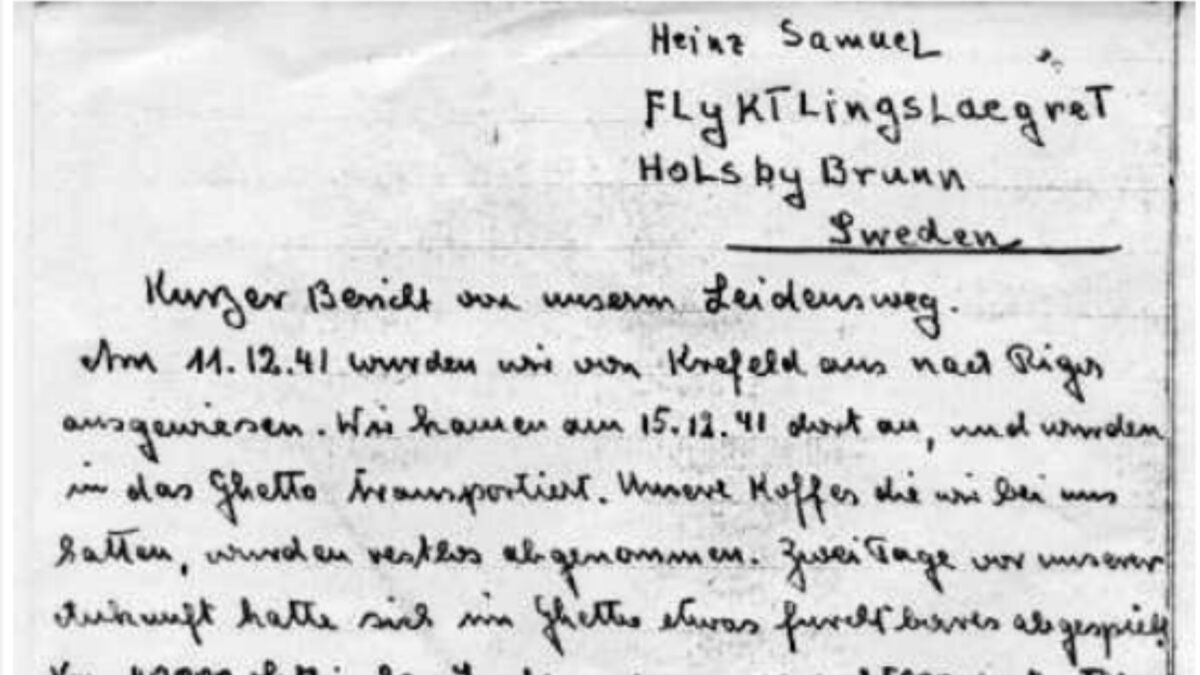 Heinz Samuel
FLyKTLingsLaegreT
HoLsby Brunn
Sweden
Kurzer Bericht von unserm Leidensweg.
Am 11.12.41 wurden wir von Krefeld aus nach Riga
ausgewiesen. Wir kamen am 15.12.41 dort an, und wurden
in das Ghetto transportiert. Unsere Koffer die wir bei uns
hatten, wurden restlos abgenommen. Zwei Tage vor unserer
Ankunft hatte sich im Ghetto etwas furchtbares abgespielt.